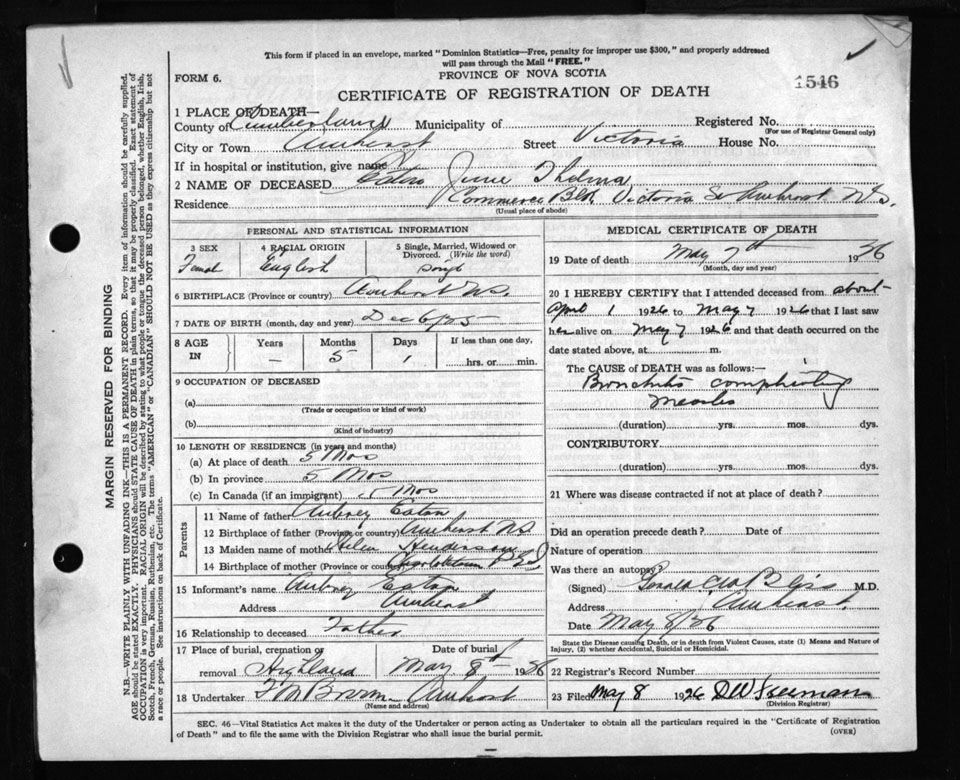 This form if placed in an envelope, marked "Dominion Statistics—Free, penalty for improper use $300," and properly addressed
will pass through the Mail "FREE."
FORM 6.
PROVINCE OF NOVA SCOTIA
1546
CERTIFICATE OF REGISTRATION OF DEATH
1 PLACE OF DEATH—
County of Cumberland Municipality of Registered No.
(For use of Registrar General only)
City or Town Amherst Street Victoria House No.
If in hospital or institution, give name
2 NAME OF DECEASED Eaton June Thelma
Residence Commerce Bld Victoria St Amherst N.S.
(Usual place of abode)
PERSONAL AND STATISTICAL INFORMATION
3 SEX 4 RACIAL ORIGIN 5 Single, Married, Widowed or Divorced. (Write the word)
Femal English Singl
6 BIRTHPLACE (Province or country) Amherst N.S.
7 DATE OF BIRTH (month, day and year) Dec 6/25
8 AGE IN Years Months Days If less than one day,
— 5 1 hrs. or min.
9 OCCUPATION OF DECEASED
(a)
(Trade or occupation or kind of work)
(b)
(Kind of industry)
10 LENGTH OF RESIDENCE (in years and months)
(a) At place of death 5 Mos
(b) In province 5 Mos
(c) In Canada (if an immigrant) 5 Mos
Parents
11 Name of father Aubrey Eaton
12 Birthplace of father (Province or country) Amherst N.S.
13 Maiden name of mother Helen Henderson
14 Birthplace of mother (Province or country) Charlottetown P.E.I.
15 Informant's name Aubrey Eaton
Address Amherst
16 Relationship to deceased Father
17 Place of burial, cremation or removal Highland
Date of burial May 8th 1936
18 Undertaker F M Brown Amherst
(Name and address)
MEDICAL CERTIFICATE OF DEATH
19 Date of death May 7th 1936
(Month, day and year)
20 I HEREBY CERTIFY that I attended deceased from about
April 1 1926 to May 7 1926 that I last saw
her alive on May 7 1926 and that death occurred on the
date stated above, at m.
The CAUSE OF DEATH was as follows:—
Bronchitis complicating
Measles
(duration) yrs. mos. dys.
CONTRIBUTORY
(duration) yrs. mos. dys.
21 Where was disease contracted if not at place of death?
Did an operation precede death? Date of
Nature of operation
Was there an autopsy?
(Signed) Bliss M.D.
Address Amherst
Date May 8/36
State the Disease causing Death, or in death from Violent Causes, state (1) Means and Nature of
Injury, (2) whether Accidental, Suicidal or Homicidal.
22 Registrar's Record Number
23 Filed May 8 1926 D W Freeman
(Division Registrar)
SEC. 46—Vital Statistics Act makes it the duty of the Undertaker or person acting as Undertaker to obtain all the particulars required in the "Certificate of Registration
of Death" and to file the same with the Division Registrar who shall issue the burial permit.
(OVER)
MARGIN RESERVED FOR BINDING
N.B.—WRITE PLAINLY WITH UNFADING INK—THIS IS A PERMANENT RECORD. Every item of information should be carefully supplied.
AGE should be stated EXACTLY. PHYSICIANS should STATE CAUSE OF DEATH in plain terms, so that it may be properly classified. Exact statement of
OCCUPATION is very important. RACIAL ORIGIN will be described by stating to what people or tongue the deceased person belonged, whether English, Irish,
Scotch, French, German, Russian, Ruthenian, etc. The terms "AMERICAN" or "CANADIAN" SHOULD NOT BE USED as they express citizenship but not
a race or people. See instructions on back of Certificate.